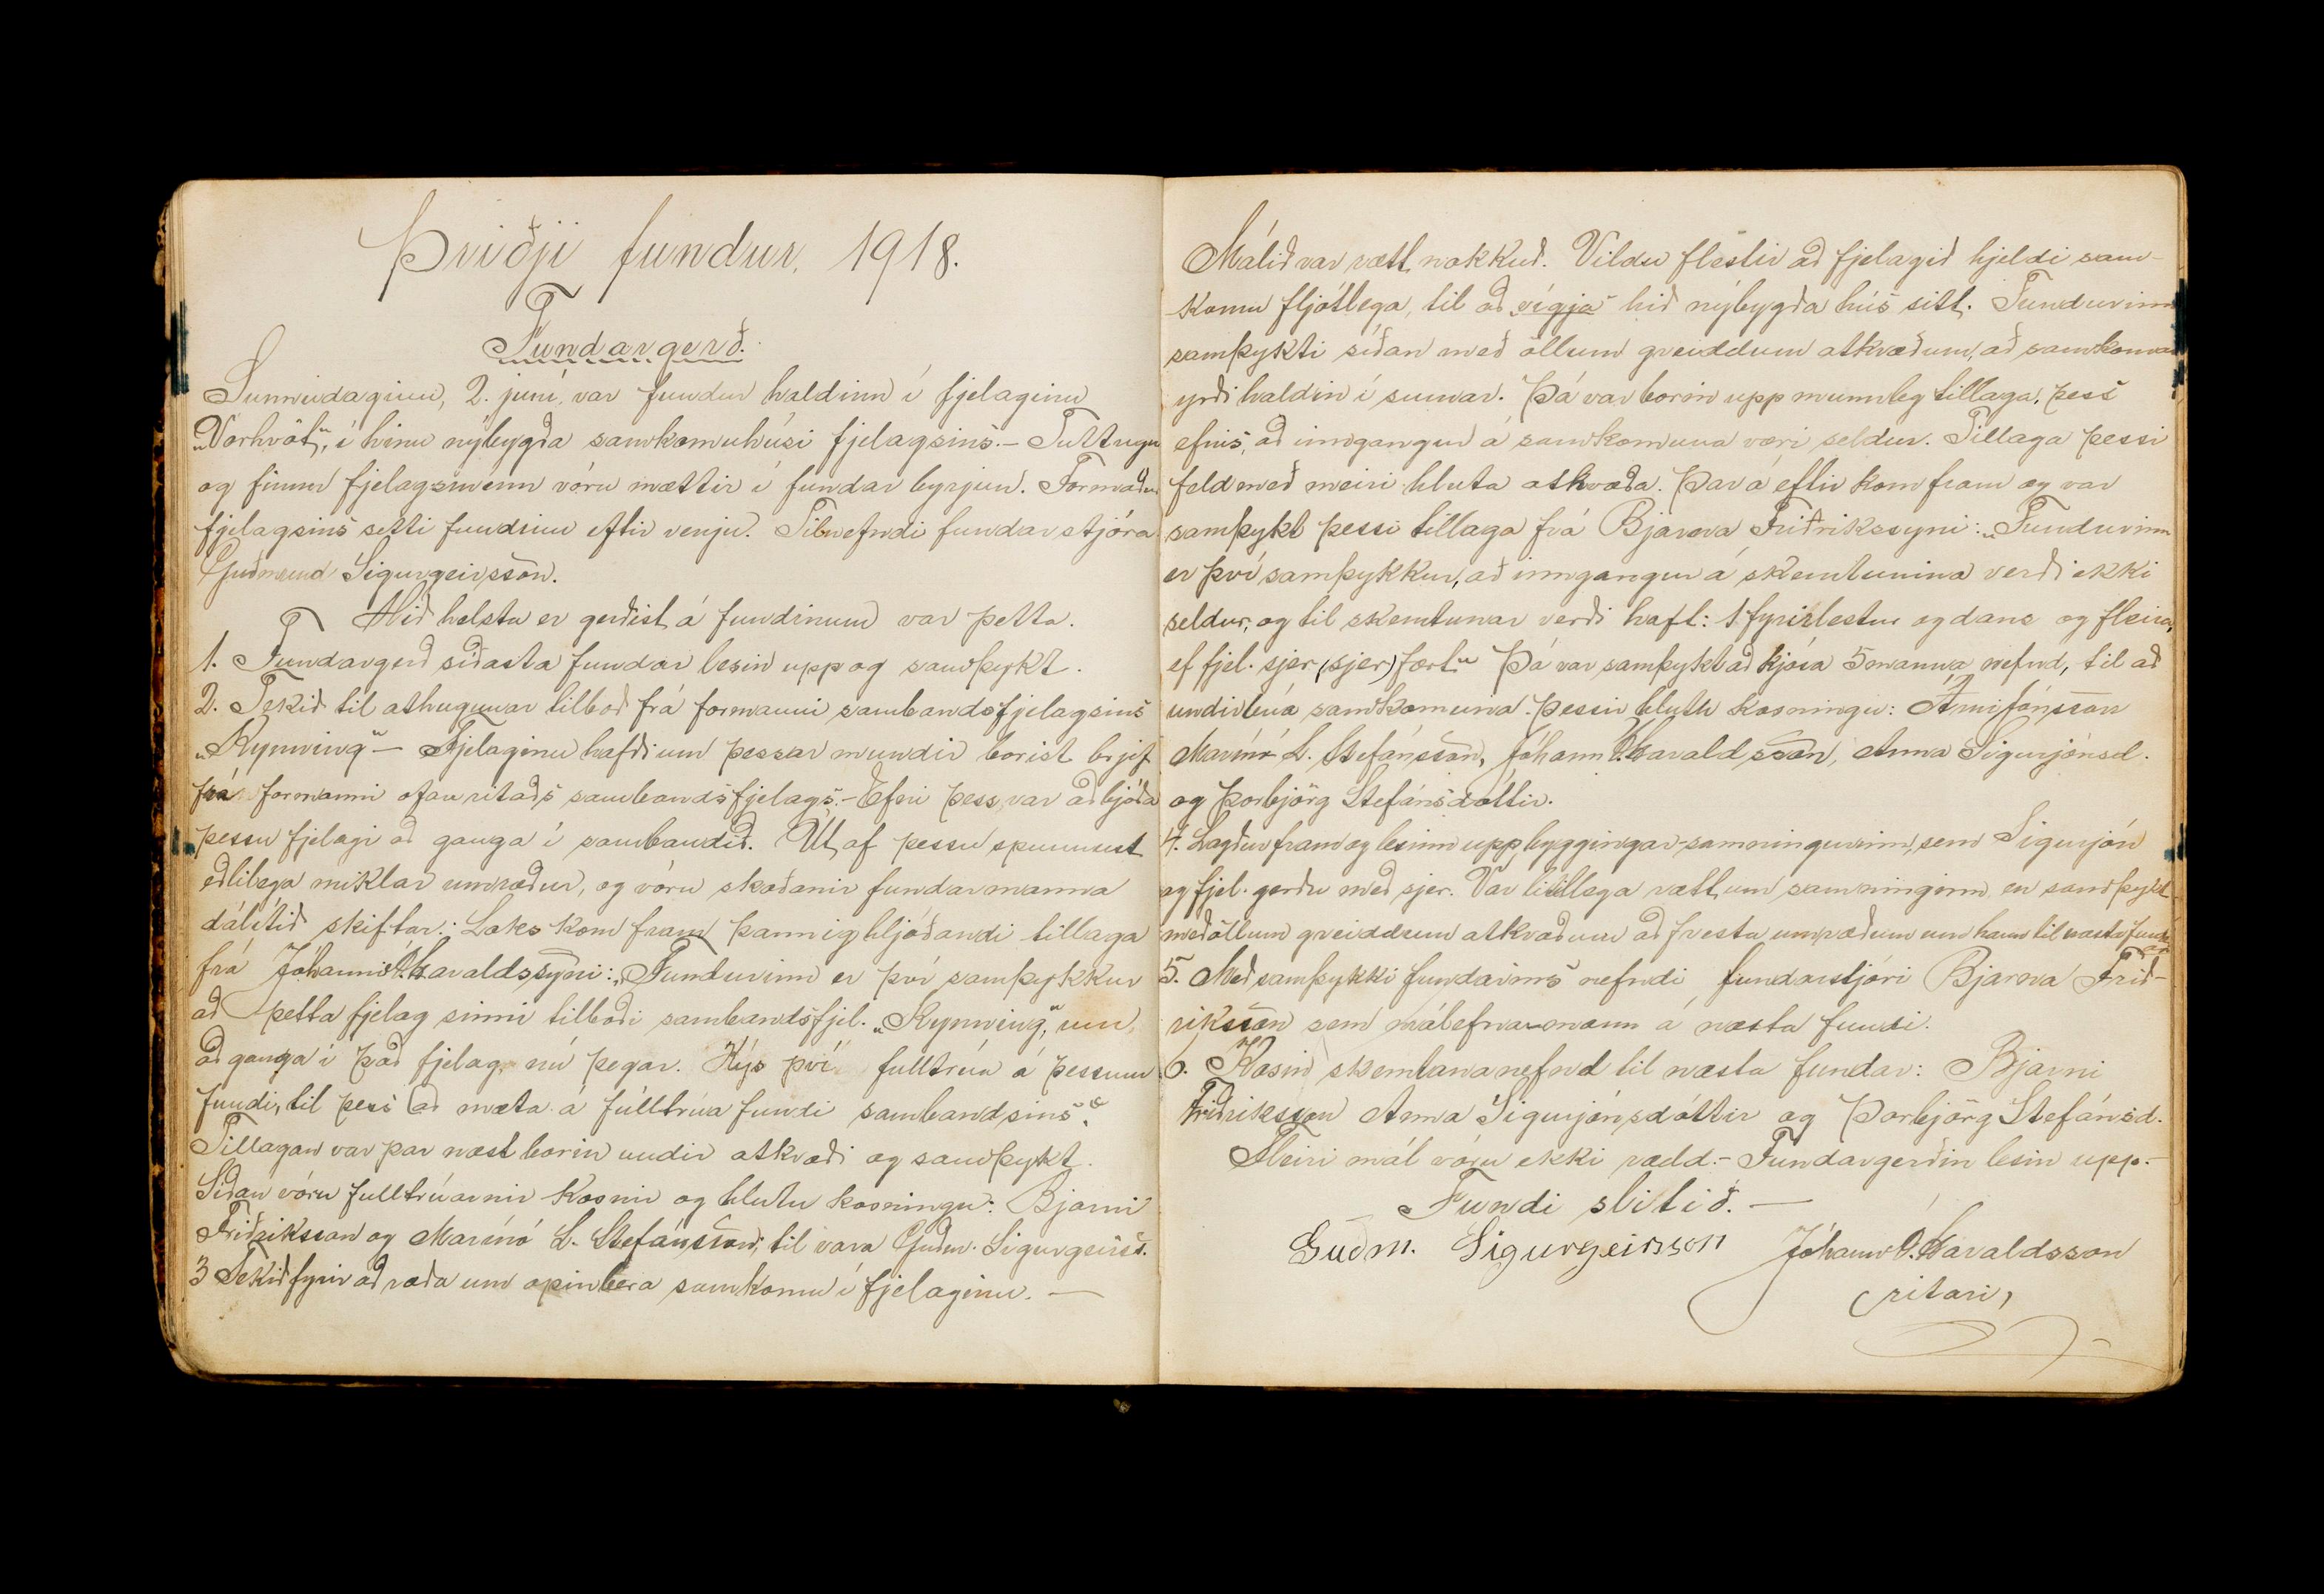 Þriðji fundur, 1918.
Fundargerð.
Sunnudaginn, 2. júní, var fundur haldinn í fjelaginu
„Vorhvöt“, í hinu nýbygða samkomuhúsi fjelagsins. - Tuttugu
og fimm fjelagsmenn vóru mættir í fundar byrjun. Formaður
fjelagsins setti fundinn eftir venju. Tilnefndi fundarstjóra
Guðmund Sigurgeirsson.
Hið helsta er gerðist á fundinum var þetta.
1. Fundargerð síðasta fundar lesin upp og samþykt.
2. Tekið til athugunar tilboð frá formanni sambandsfjelagsins
„Kynning“ - Fjelaginu hafði um þessar mundir borist brjef
frá formanni ofanritaðs sambandsfjelags. - Efni þess var að bjóða
þessu fjelagi að ganga í sambandið. Út af þessu spunnust
eðlilega miklar umræður, og vóru skoðanir fundarmanna
dálítið skiftar. Loks kom fram þannig hljóðandi tillaga
frá Jóhanni Haraldssyni: „Fundurinn er því samþykkur
að þetta fjelag sinni tilboði sambandsfjel. „Kynning,“ um,
að ganga í það fjelag nú þegar. Kýs því fulltrúa á þessum
fundi, til þess að mæta á fulltrúa fundi sambandsins“.
Tillagan var þar næst borin undir atkvæði og samþykt.
Síðan vóru fulltrúarnir kosnir og hlutu kosningu: Bjarni
Friðriksson og Marínó L. Stefánsson; til vara Guðm. Sigurgeirss.
3 Tekið fyrir að ræða um opinbera samkomu í fjelaginu. —
Málið var rætt nokkuð. Vildu flestir að fjelagið hjeldi sam-
komu fljótlega, til að „vígja“ hið nýbygða hús sitt. Fundurinn
samþykti síðan með öllum greiddum atkvæðum, að samkoma
yrði haldin í sumar. Þá var borin upp munnleg tillaga, þess
efnis, að inngangur á samkomuna væri seldur. Tillaga þessi
feld með meiri hluta atkvæða. Þar á eftir kom fram og var
samþykt þessi tillaga frá Bjarna Friðrikssyni: „Fundurinn
er því samþykkur, að inngangur á skemtunina verði ekki
seldur, og til skemtunar verði haft: 1 fyrirlestur og dans og fleira,
ef fjel. sjer (sjer) fært.“ Þá var samþykt að kjósa 5 manna nefnd, til að
undirbúa samkomuna. Þessir hlutu kosningu: Árni Jónsson
Marínó L. Stefánsson, Jóhann Haraldsson, Anna Sigurjónsd.
og Þorbjörg Stefánsdóttir.
4. Lagður fram og lesinn upp byggingar-samningurinn, sem Sigurjón
og fjel. gerðu með sjer. Var lítillega rætt um samninginn en samþykt
með öllum greiddum atkvæðum að fresta umræðum um hann til næsta fundar
5. Með samþykki fundarins nefndi fundarstjóri Bjarna Frið-
riksson sem málefnamann á næsta fundi.
6. Kosin skemtananefnd til næsta fundar: Bjarni
Friðriksson Anna Sigurjónsdóttir og Þorbjörg Stefánsd.
Fleiri mál vóru ekki rædd. - Fundargerðin lesin upp. -
Fundi slitið. —
Guðm. Sigurgeirsson Jóhann Haraldsson
(ritari)